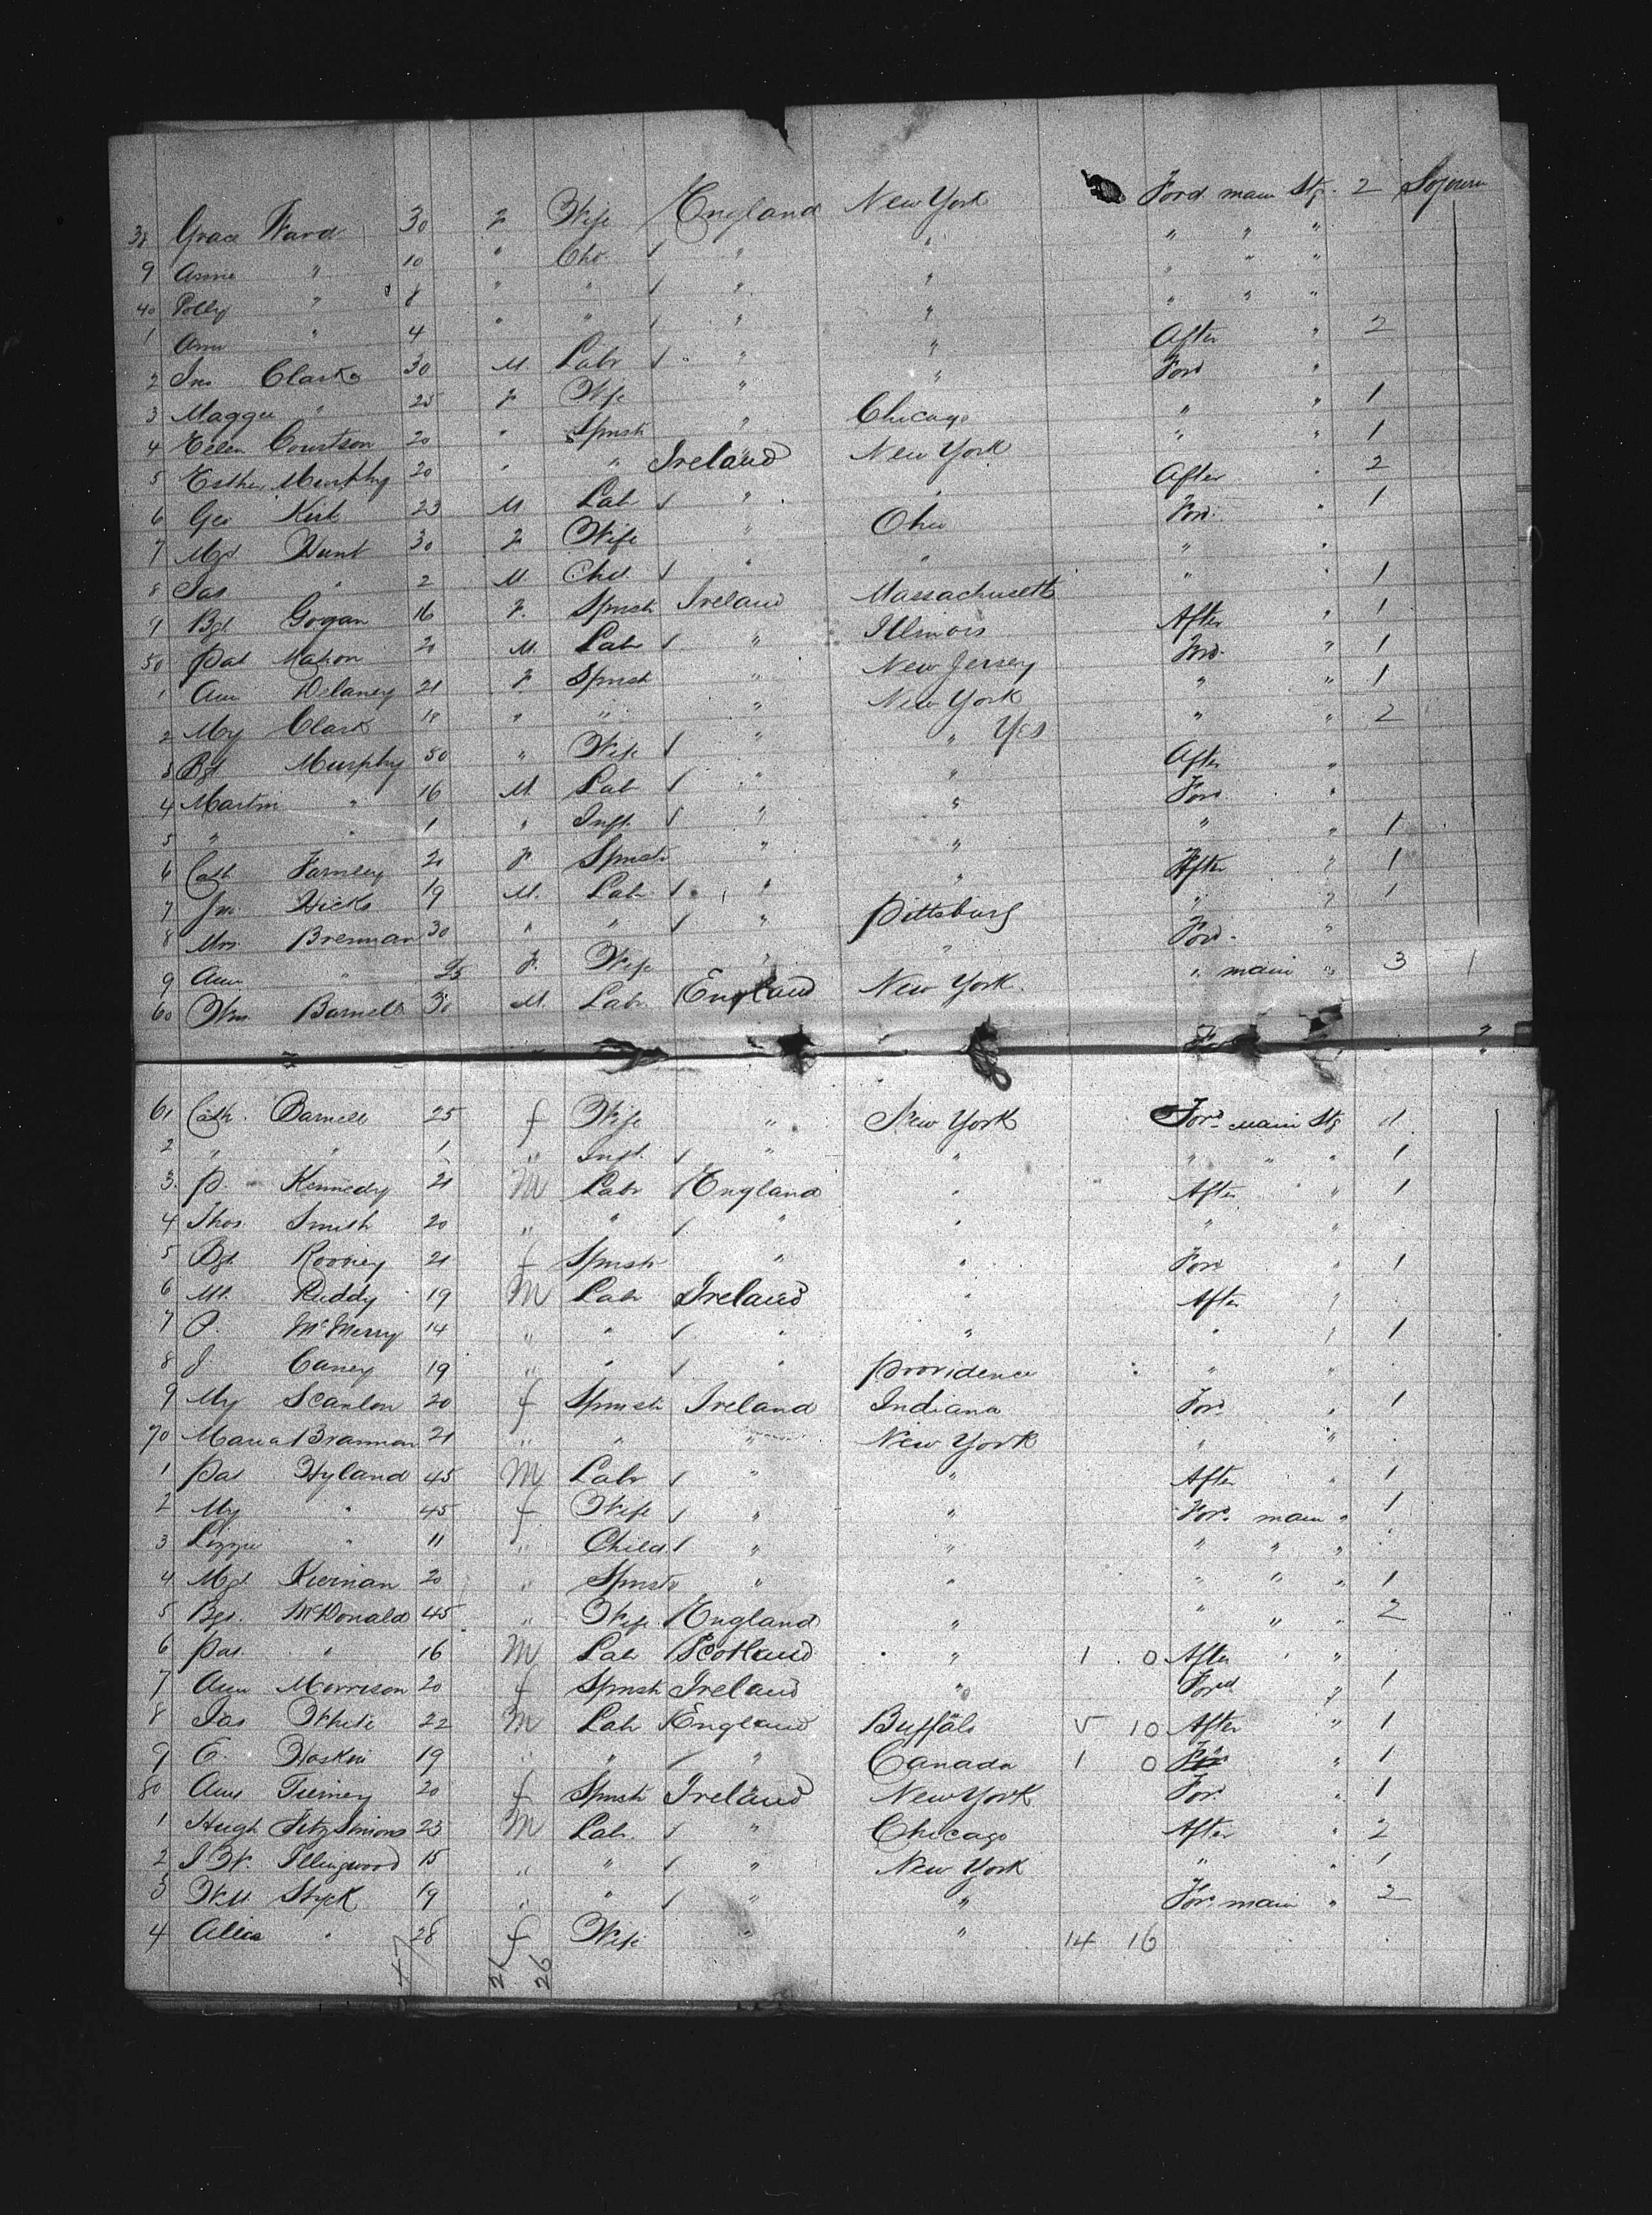 38 Grace Ward 30 f Wife England New York Ford main Stg. 2 Sojourn
9 Annie " 10 " Chd. / " " " " "
40 Polly " 8 " " / " " " " "
1 Ann " 4 " " / " " " " "
2 Jno Clark 30 M. Labr / " " After " 2
3 Maggie " 25 f Wife " " Ford "
4 Ellen Courtson 20 " Spnstr " Chicago " " 1
5 Esther Murphy 20 " " Ireland New York " " 1
6 Geo Kirk 23 M Labr / " " After " 2
7 Mgt Hunt 30 f Wife " Ohio For. " 1
8 Jas " 2 M. Chd. / " " " "
9 Bgt Gogan 16 f. Spnstr Ireland Massachusetts " " 1
50 Pat Mahon 21 M. Labr / " Illinois After " 1
1 Ann Delaney 21 f. Spnstr " New Jersey For. " 1
2 My Clark 18 " " " New York " " 1
3 Bgt Murphy 50 " Wife / " " Yes " " 2
4 Martin " 16 M. Lab / " " After "
5 " " 1 " Inft. / " " For. "
6 Cath Farnley 21 f. Spnstr " " " " 1
7 Jm. Hicks 19 M. Labr / " " After " 1
8 Mrr. Brennan 30 " " / " Pittsburg " " 1
9 Ann " 25 f. Wife " " For. "
60 Wm Barnell 30 M. Labr. England New York. " main " 3 1
61 Cath. Barnell 25 f Wife " New York For. main Stg
2 " " 1 " Inft. / " " " " " 1
3. P. Kennedy 21 M Labr England " After " 1
4 Thos. Smith 20 " " / " " " "
5 Bgt. Rooney 21 f Spnstr " " For " 1
6 Ml. Ruddy 19 M Labr Ireland " After "
7 P. McMerry 14 " " / " " " " 1
8 J Caney 19 " " / " Providence " "
9 My Scanlon 20 f Spnstr Ireland Indiana For. " 1
70 Maria Brannan 21 " " " New York " "
1 Pat Hyland 45 M Labr / " " After " 1
2 My " 45 f Wife / " " For. main " 1
3 Lizzie " 11 " Child / " " " " "
4 Mgt Kiernan 20 " Spnstr " " " " " 1
5 Bgt. McDonald 45 " Wife England " " " " 2
6 Pat. " 16 M Labr Scotland " 1 0 After "
7 Ann Morrison 20 f Spnstr Ireland " Ford " 1
8 Jas White 22 M Labr England Buffalo 5 10 After " 1
9 E. Haskin 19 " " / " Canada 1 0 " 1
80 Ann Tierney 20 f Spnstr Ireland New York For. " 1
1 Hugh FitzSimons 23 M Labr. / " Chicago After " 2
2 J W. Illingwood 15 " " / " New York " " 1
3 Wm Styck 19 " " / " " For. main " 2
4 Alice " 28 f Wife " " 14 16
47 21 26